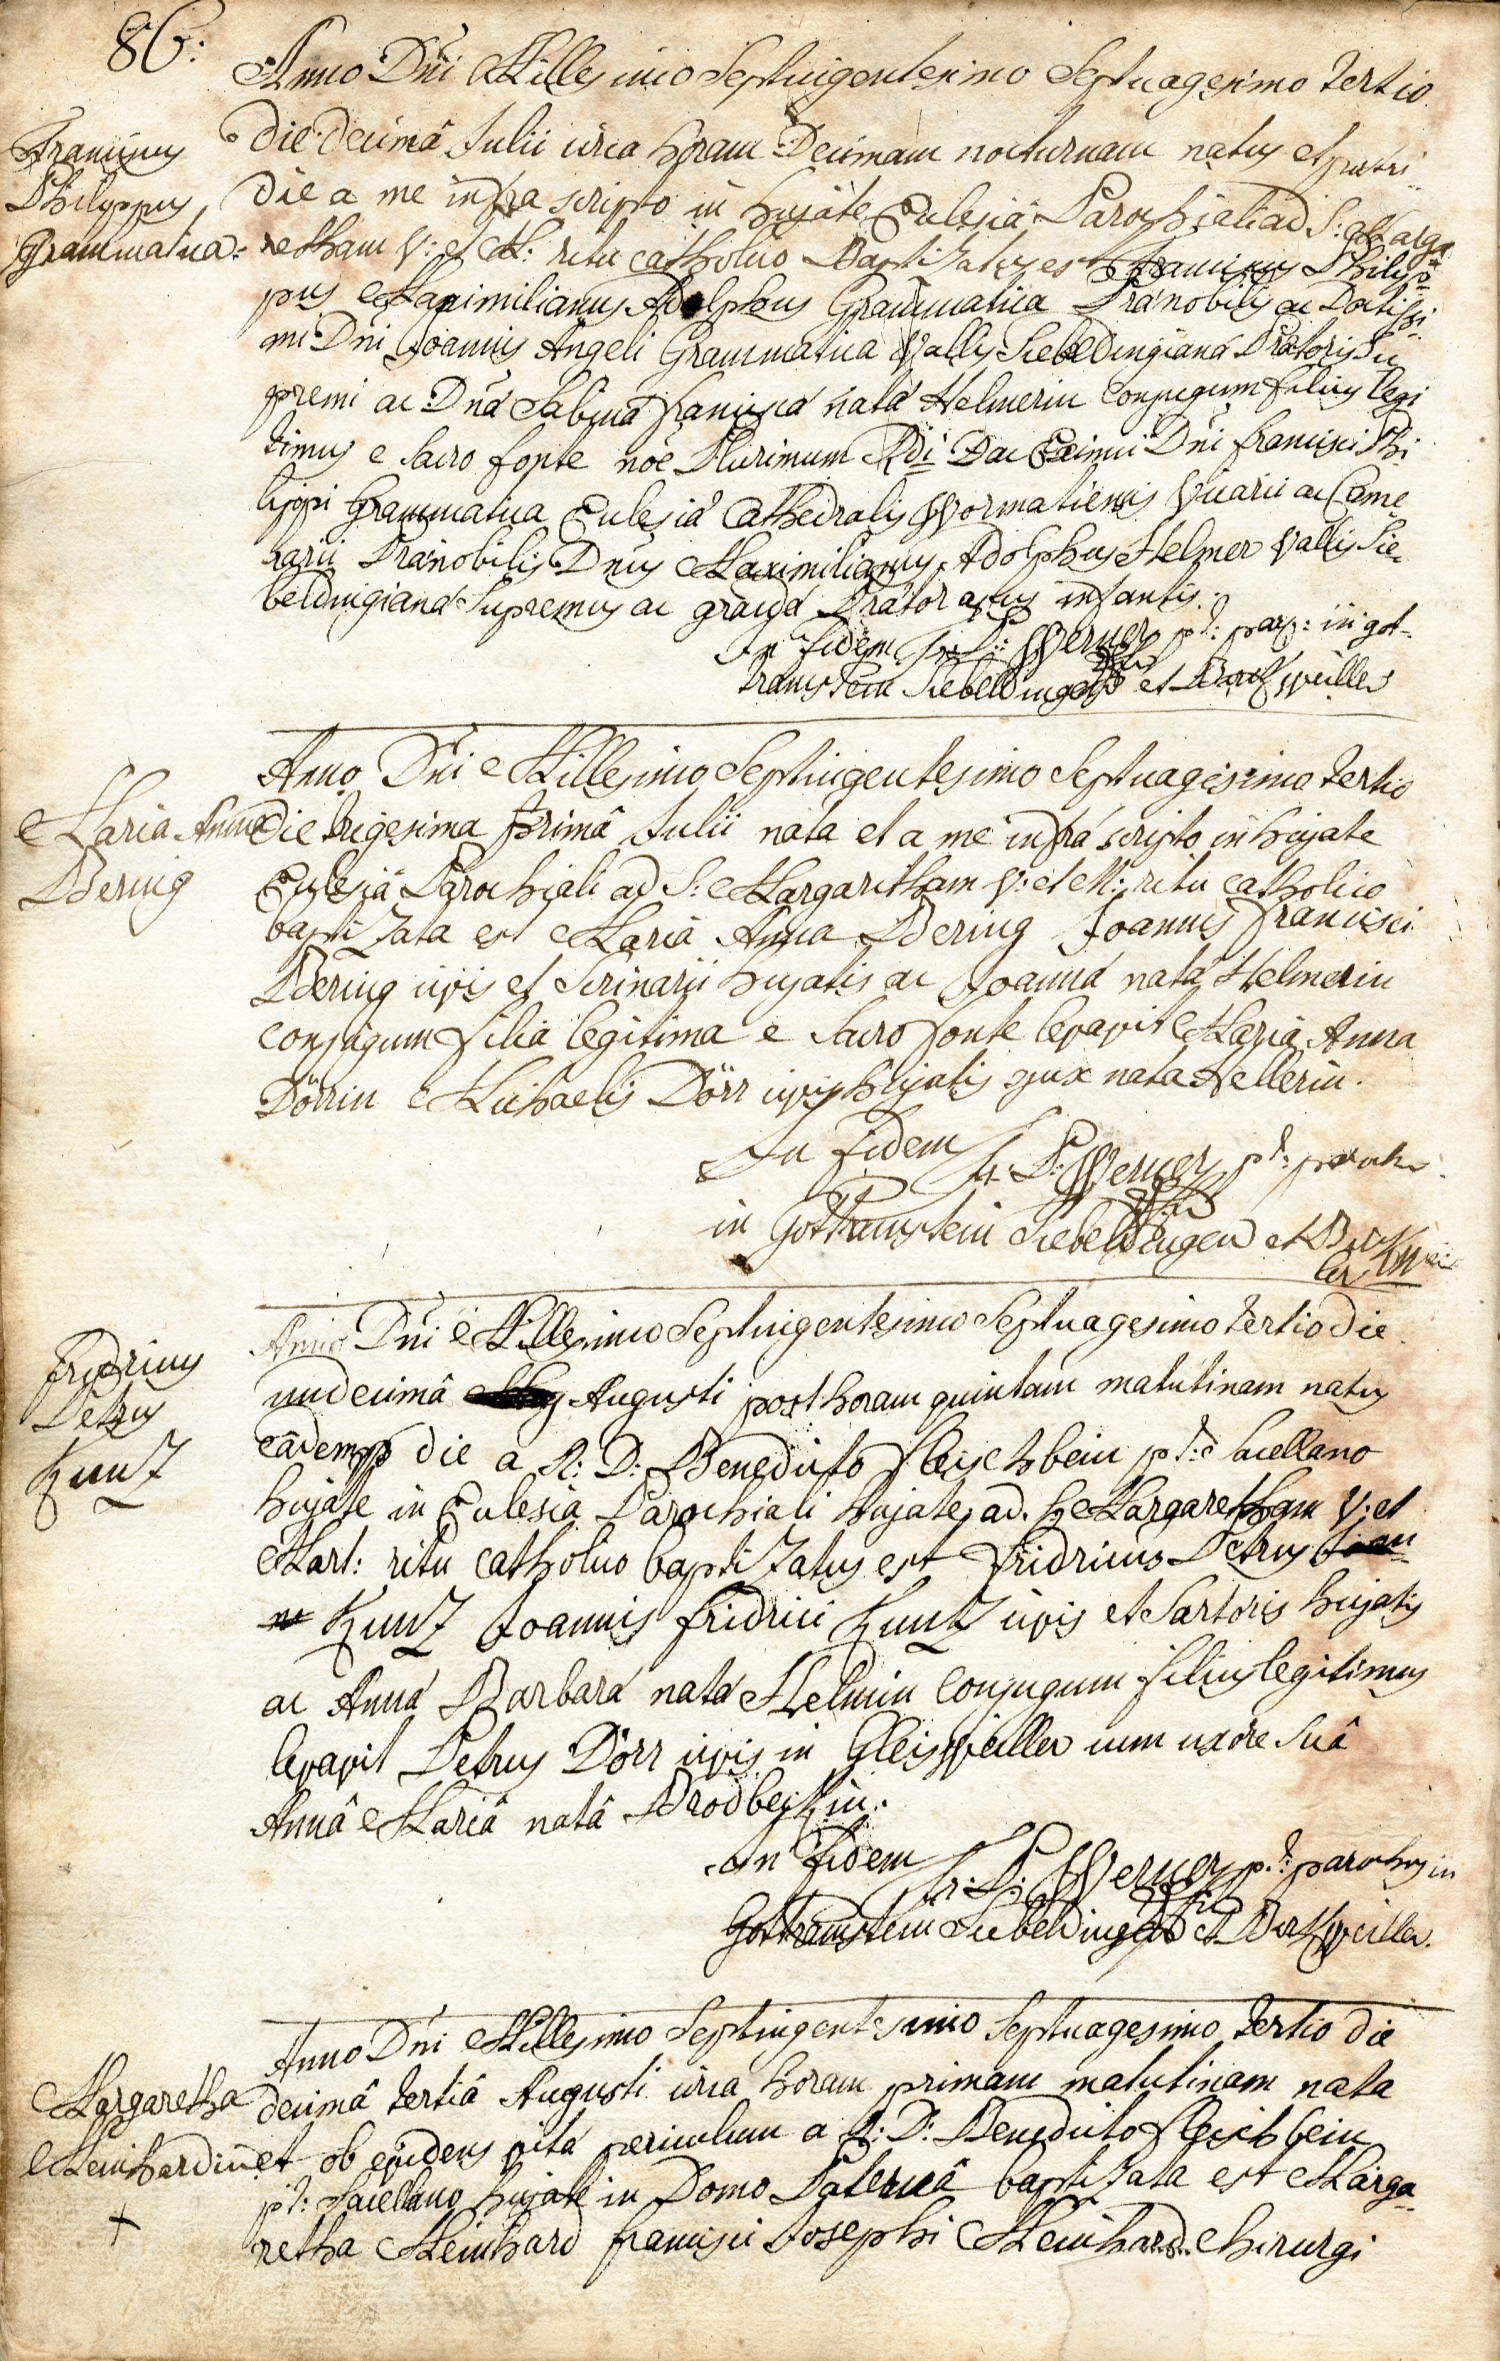 86:
Anno Dñi Millesimo Septingentesimo Septuagesimo tertio
Franciscus
Philippus
Grammatica:
die decimâ Julii circa horam Decimam nocturnam natus et postri
die a me infra scripto in hujate Ecclesiâ Parochiali ad S: Marga
retham V: et M: ritu catholico Baptizatus est Franciscus Philip
pus Maximilianus Adolphus Grammatica Prænobilis ac Doctissi
mi Dñi Joannis Angeli Grammatica Vallis Siebeldingianæ Prætoris Su
premi ac Dñæ Sabinæ Franciscæ natæ Helmerin conjugum filius legi
timus e Sacro fonte noe Plurimum Rdi D ac Eximii Dñi Francisci Phi
lippi Grammatica Ecclesiæ Cathedralis Wormatiensis Vicarii ac Came
rarii Prænobilis Dñus Maximilianus Adolphus Helmer Vallis Sie
beldingianæ Supremus ac Prætor avus infantis.
In fidem Fr: P: Werner pt: par: in got
tramstein Siebeldingen et Birckweiller
Maria Anna
Bering
Anno Dñi Millesimo Septingentesimo Septuagesimo tertio
die trigesima primâ Julii nata et a me infra scripto in hujate
Ecclesiâ Parochiali ad S: Margaritham V: et M: ritu catholico
baptizata est Maria Anna Bering Joannis Francisci
Bering civis et Scrinarii hujatis ac Joannæ natæ Helmerin
conjugum filia legitima e Sacro fonte levavit Maria Anna
Dörrin Michaelis Dörr civis hujatis uxor nata Kellerin.
In fidem Fr. P: Werner pt: parochus
in Gottramstein Siebeldingen et Birckwei
ler
Fridricus
Petrus
Kuntz
Anno Dñi Millesimo Septingentesimo Septuagesimo tertio die
undecimâ Augusti post horam quintam matutinam natus
eâdemq die a R: D: Benedicto Fleischbein pt: Sacellano
hujate in Ecclesia Parochiali hujate ad S: Margaretham V: et
Mart: ritu catholico baptizatus est Fridricus Petrus Joan
ne Kuntz Joannis Fridrici Kuntz civis et Sartoris hujatis
ac Annæ Barbaræ natæ Helmin conjugum filius legitimus
levavit Petrus Dörr civis in Gleisweiller cum uxore Suâ
Annâ Mariâ natâ Brodbeckin.
In fidem Fr: P: Werner pt: parochus in
Gottramstein Siebeldingen et Birckweiller.
Margaretha
Meinhardin
+
Anno Dñi Millesimo Septingentesimo Septuagesimo tertio die
decimâ tertiâ Augusti circa horam primam matutinam nata
et ob evidens vitæ periculum a R: D: Benedicto Fleischbein
pt: Sacellano hujate in Domo Paternâ baptizata est Marga
retha Meinhard Francisci Josephi Meinhard Chirurgi